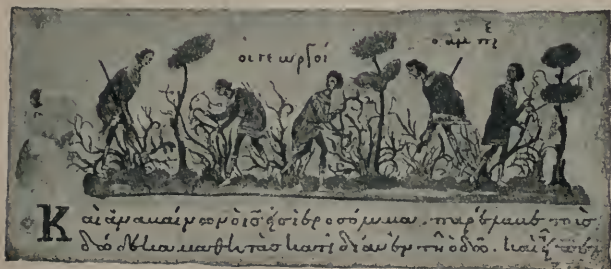 οι γεωργοί
ο αμπε
Καὶ ἀναβαίνων ὁ ις εἰς ιεροσόλυμα. παρέλαβε τοὺς
δώδεκα μαθητὰς κατιδίαν ἐν τῇ ὁδῶ. καὶ